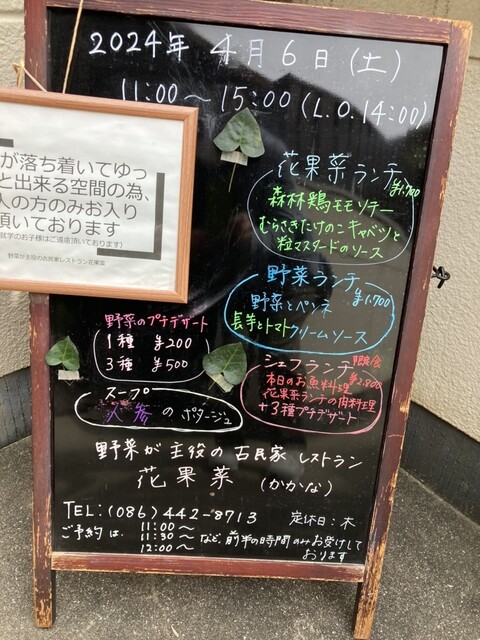 2024年 4月6日(土)
11:00〜15:00(L.O.14:00)
が落ち着いてゆっ
と出来る空間の為、
人の方のみお入り
頂いております
就学のお子様はご遠慮頂いております)
野菜が主役の古民家レストラン花果菜
花果菜ランチ
¥1,700
森林鶏モモソテー
むらさきたけのこキャベツと
粒マスタードのソース
野菜ランチ
¥1,700
野菜とペンネ
長芋とトマトクリームソース
野菜のプチデザート
1種 ¥200
3種 ¥500
シェフランチ 限食
¥2,800
本日のお魚料理
花果菜ランチの肉料理
+3種プチデザート
スープ
人参のポタージュ
野菜が主役の古民家レストラン
花果菜(かかな)
TEL:(086)442-8713
定休日:木
ご予約は、
11:00〜
11:30〜
12:00〜
など、前半の時間のみお受けして
おります